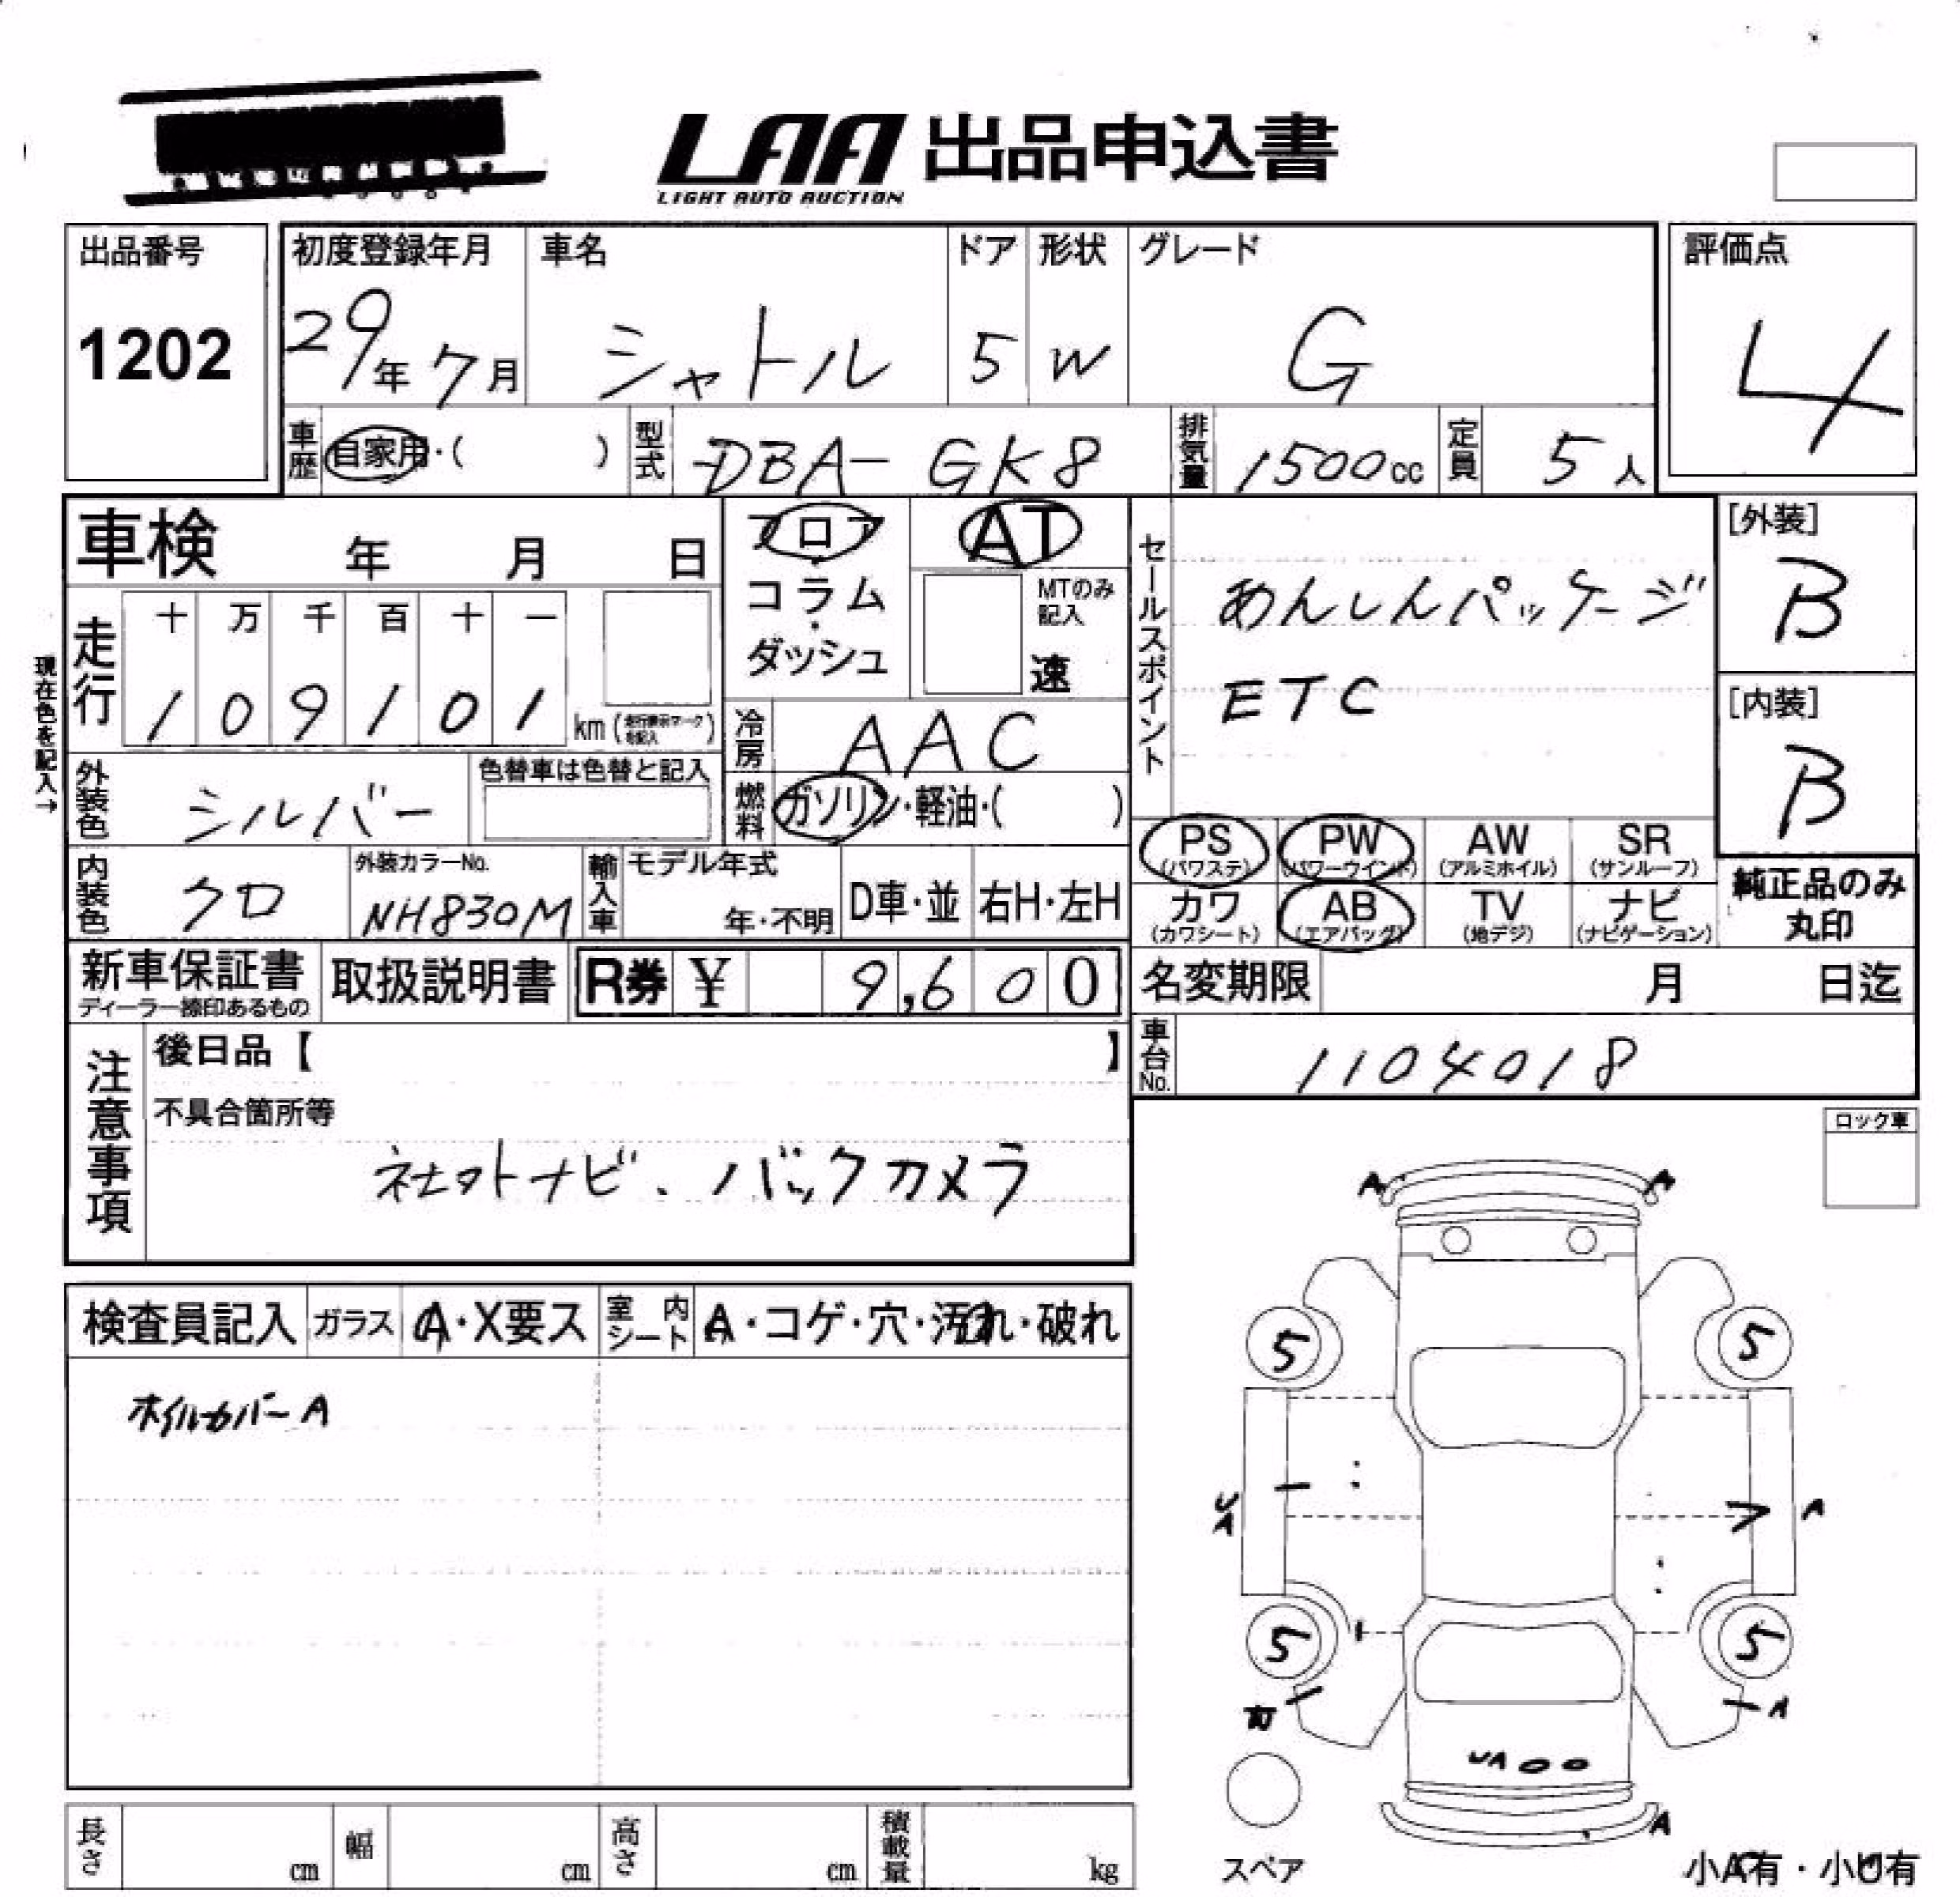 LAA 出品申込書
LIGHT AUTO AUCTION
出品番号
1202
初度登録年月
29年 7月
車名
シャトル
ドア
5
形状
W
グレード
G
評価点
4
車歴
自家用・( )
型式
DBA- GK8
排気量
1500cc
定員
5人
車検 年 月 日
フロア・コラム・ダッシュ
AT
MTのみ記入
速
セールスポイント
あんしんパッケージ
ETC
[外装]
B
[内装]
B
現在色を記入→
走行
十 万 千 百 十 一
1 0 9 1 0 1 km (走行表示マークを記入)
冷房
AAC
外装色
シルバー
色替車は色替と記入
燃料
ガソリン・軽油・( )
PS (パワステ)
PW (パワーウインド)
AW (アルミホイル)
SR (サンルーフ)
カワ (カワシート)
AB (エアバッグ)
TV (地デジ)
ナビ (ナビゲーション)
純正品のみ丸印
内装色
クロ
外装カラーNo.
NH830M
輸入車
モデル年式
年・不明
D車・並
右H・左H
新車保証書
ディーラー捺印あるもの
取扱説明書
R券 ¥ 9,600
名変期限 月 日迄
車台No.
1104018
注意事項
後日品【 】
不具合箇所等
社外ナビ、バックカメラ
ロック車
検査員記入
ガラス
A・X要ス
室内シート
A・コゲ・穴・汚れ・破れ
ホイルカバーA
A A
5 5
UA A
5 5
A
UA
A
スペア
小A有・小U有
長さ cm
幅 cm
高さ cm
積載量 kg